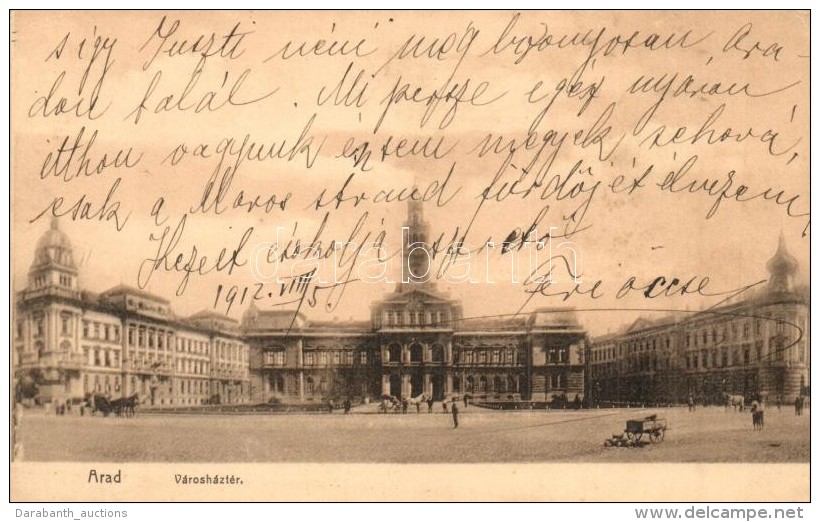 s így Juszti néni még bizonyosan Ara-
don talál. Mi persze egész nyáron
itthon vagyunk én sem megyek sehová,
csak a Maros strand fürdőjét élvezem,
Kezeit csókolja szerető
1912. VIII/5 Feri öccse
darabanth
Arad Városháztér.
Darabanth_auctions
www.delcampe.net